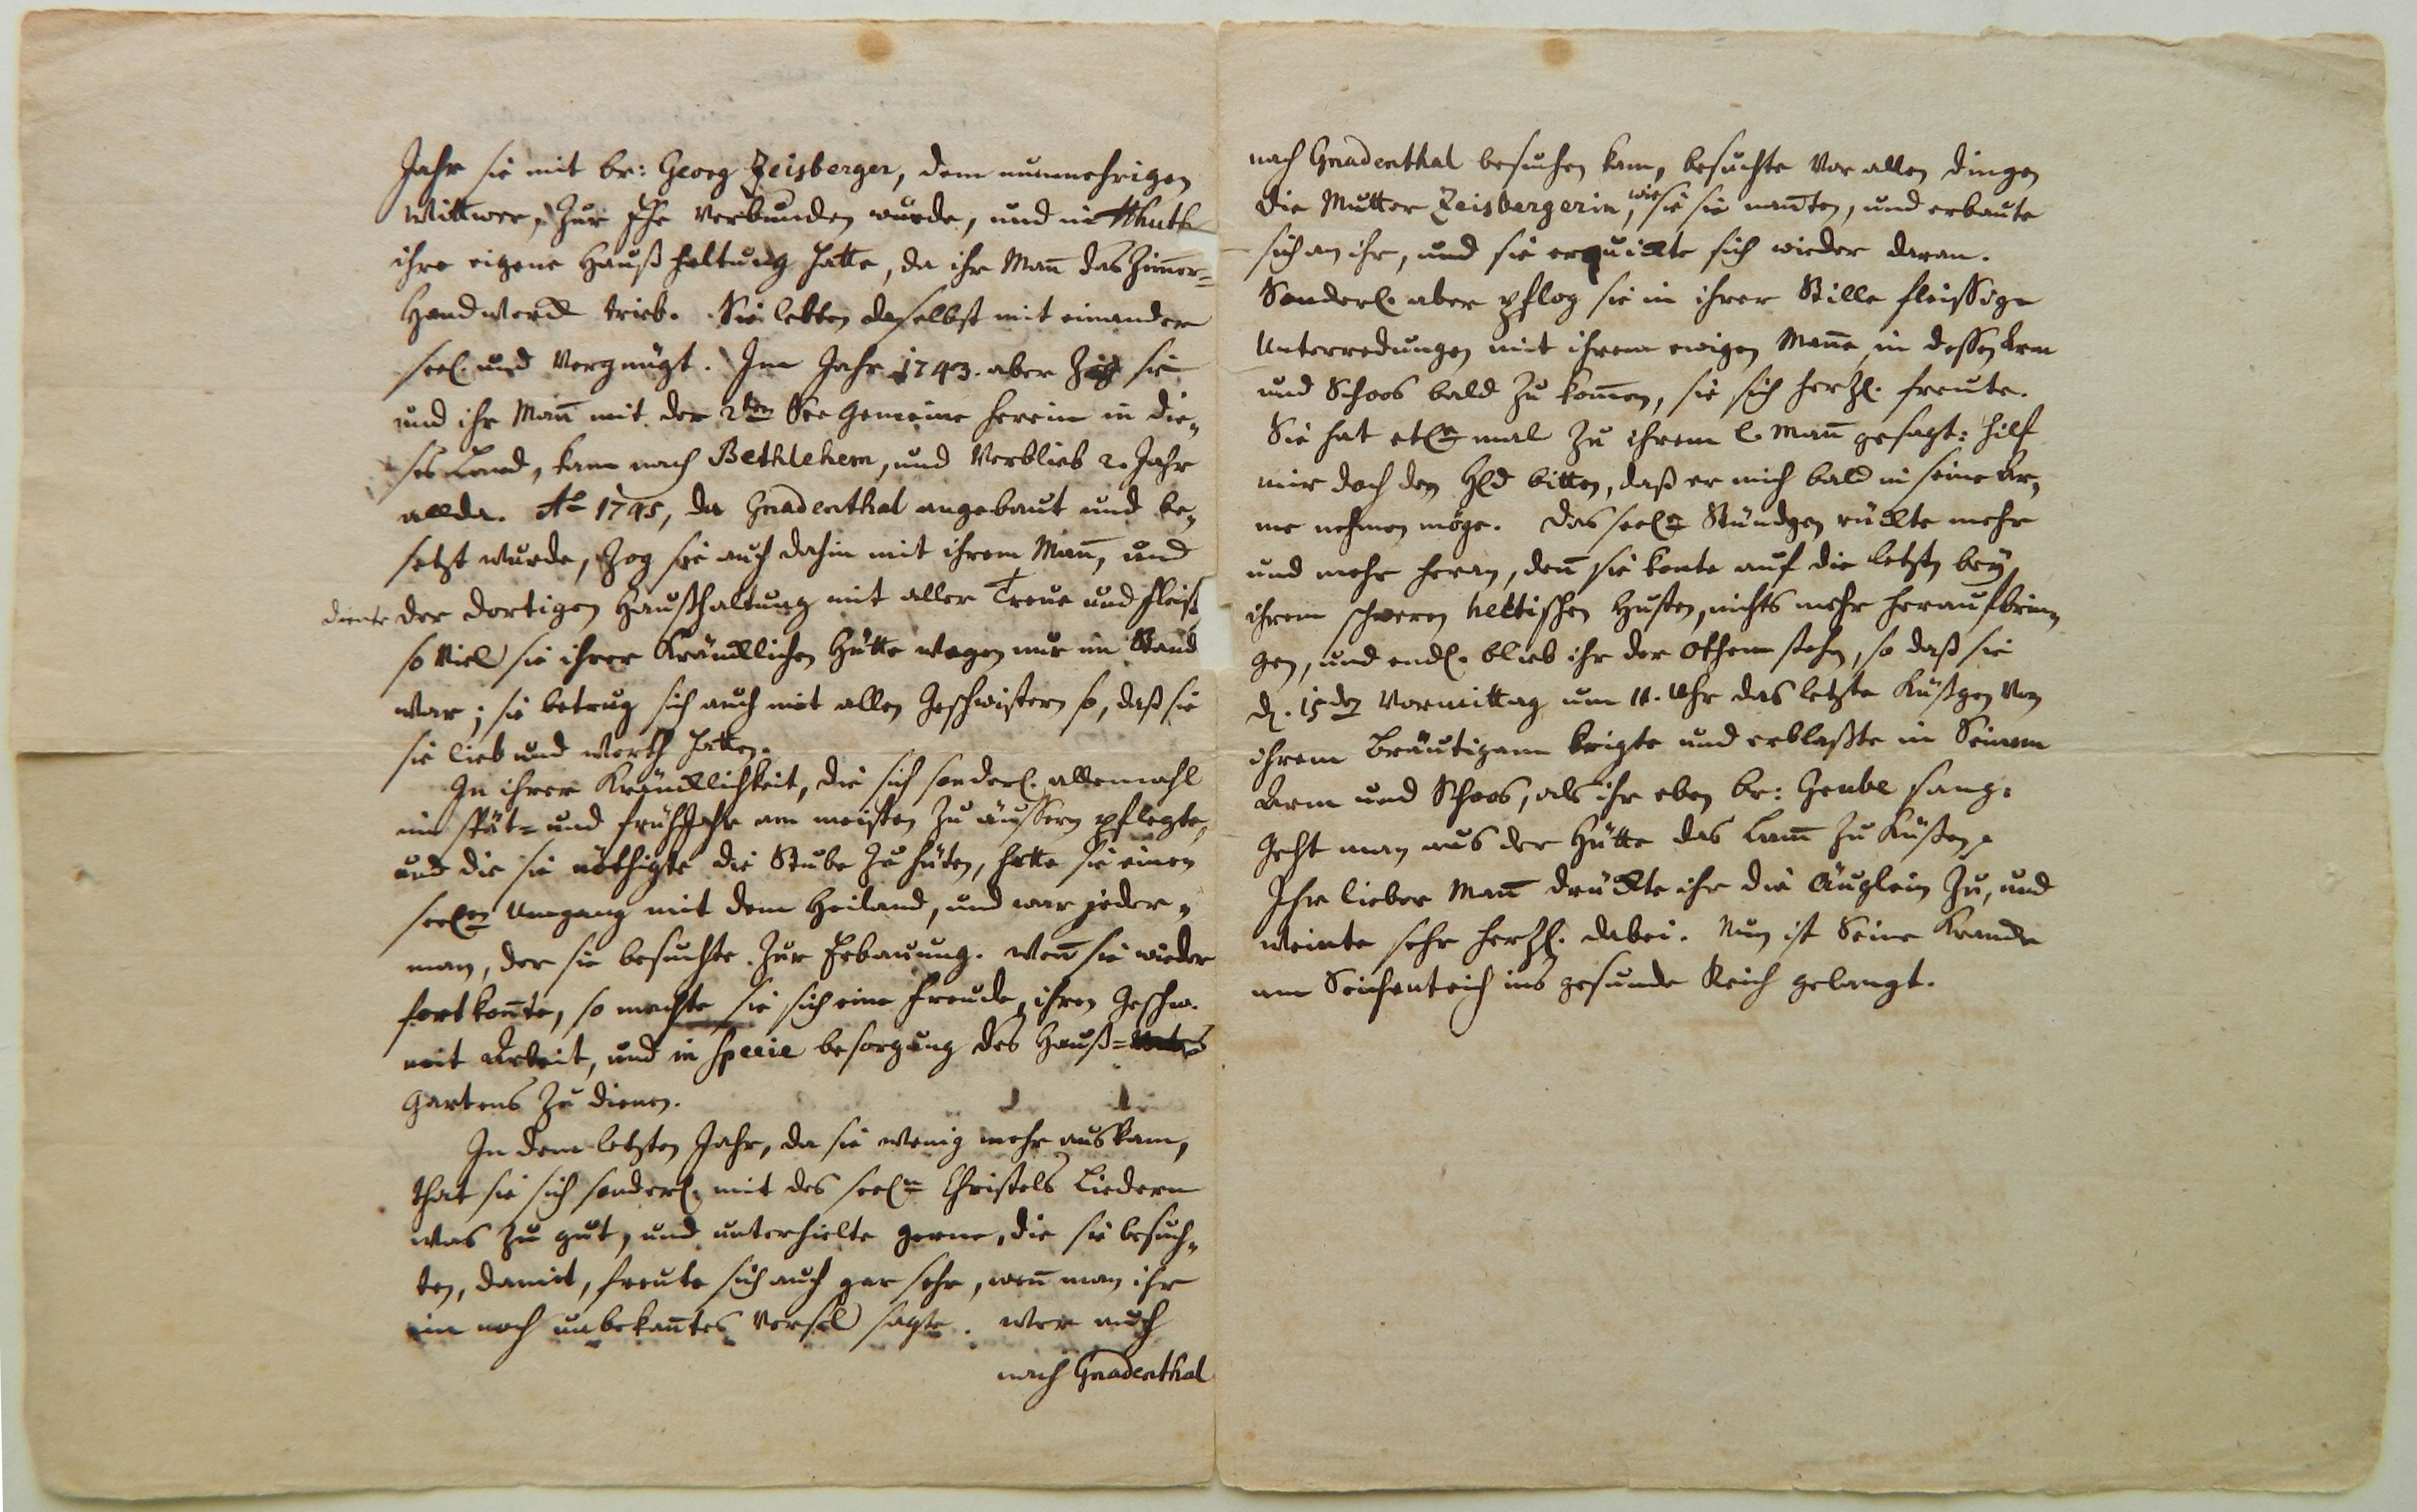 Jahr sie mit br: Georg Zeisberger, dem nunmehrigen
Wittwer, zur Ehe verbunden wurde, und in Hhuth
ihre eigene Haußhaltung hatte, da ihr Mañ das Zim̄er=
Handwerck trieb. Sie lebten daselbst mit einander
seel. und vergnügt. Im Jahr 1743. aber zog sie
und ihr Mañ mit der 2ten See Gemeine herein in die„
ses Land, kam nach Bethlehem, und verblieb 2. Jahr
allda. Ao 1745, da Gnadenthal angebaut und be„
setzt wurde, zog sie auch dahin mit ihrem Mañ, und
diente der dortigen Haußhaltung mit aller Treue und Fleiß
so viel sie ihrer Kräncklichen Hütte wegen nur im Stand
war; sie betrug sich auch mit allen Geschwistern so, daß sie
sie lieb und werth hatten.
In ihrer Kräncklichkeit, die sich sonderl. allemahl
im spät= und frühJahr am meisten zu äussern pflegte,
und die sie nöthigte die Stube zu hüten, hatte sie einen
seeln Umgang mit dem Heiland, und war jeder„
man, der sie besuchte zur Erbauung. Weñ sie wieder
fort koñte, so machte sie sich eine Freude, ihren Geschw.
mit Arbeit, und in Specie besorgung des Hauß=
Gartens zu dienen.
In dem letzten Jahr, da sie wenig mehr auskam,
that sie sich sonderl. mit des seeln Christels Liedern
was zu gut, und unterhielte gerne, die sie besuch„
ten, damit, freute sich auch gar sehr, weñ man ihr
ein noch unbekañtes Versel sagte. Wer auch
nach Gnadenthal
nach Gnadenthal besuchen kam, besuchte vor allen Dingen
die Mutter Zeisbergerin, wie sie sie nañten, und erbaute
sich an ihr, und sie erquickte sich wieder daran.
Sonderl. aber pflog sie in ihrer Stille fleissige
Unterredungen mit ihrem ewigen Mañe, in dessen Arm
und Schoos bald zu kom̄en, sie sich herzl. freute.
Sie hat etle mal zu ihrem l. Mañ gesagt: hilf
mir doch den Hld bitten, daß er mich bald in seine Ar„
me nehmen möge. Das seele Stündgen rückte mehr
und mehr heran, deñ sie konte auf die letzt bey
ihrem schweren hecktischen Husten, nichts mehr heraufbrin„
gen, und endl. blieb ihr der Othem stehn, so daß sie
d. 15den Vormittag um 11. Uhr das letzte Küßgen von
ihrem Bräutigam kriegte und erblaßte in Seinem
Arm und Schoos, als ihr eben br: Grube sang:
Geht man aus der Hütte das Lam̄ zu küßen.
Ihr lieber Mañ drückte ihr die Äuglein zu, und
weinte sehr herzl. dabei. Nun ist Seine Krancke
am Seichenteich ins gesunde Reich gelangt.